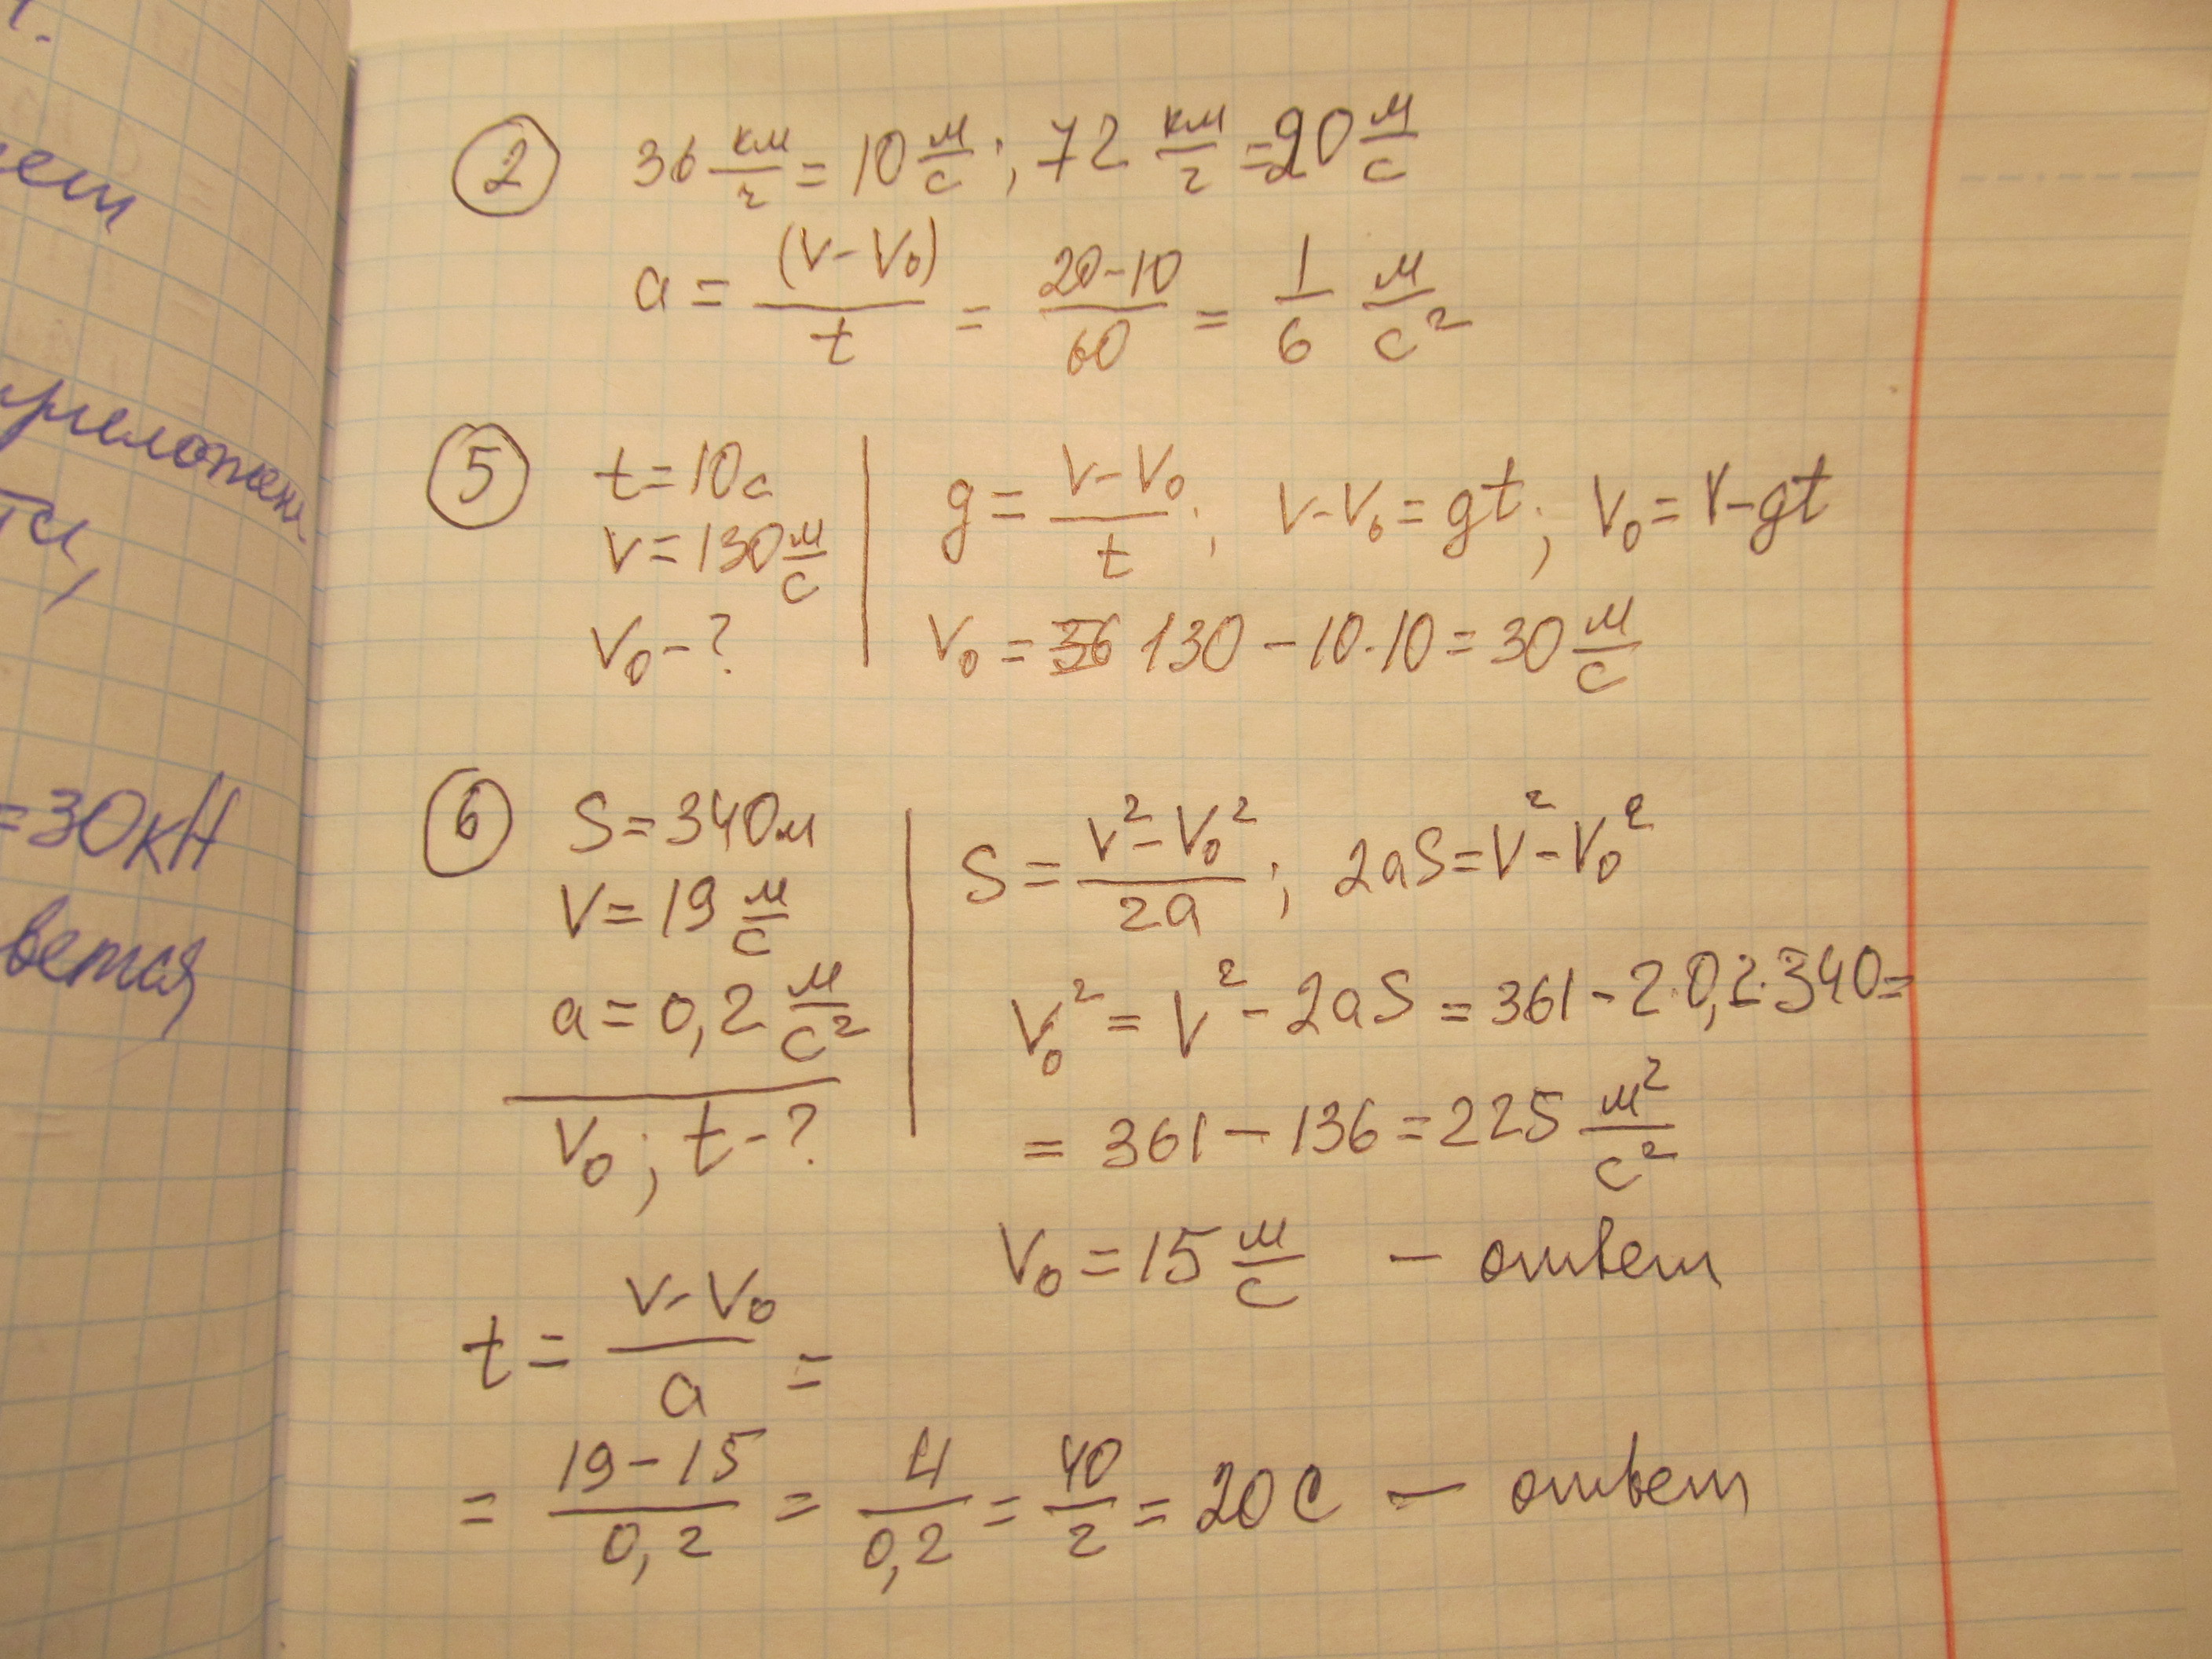 ем
приложен
тся,
=30кН
вется
② 36 км/ч = 10 м/с ; 72 км/ч = 20 м/с
a = (V-V₀)/t = 20-10/60 = 1/6 м/с²
⑤ t=10с
V=130 м/с
V₀-?
g = V-V₀/t ; V-V₀=gt ; V₀=V-gt
V₀ = 130-10·10=30 м/с
⑥ S=340м
V=19 м/с
a=0,2 м/с²
V₀ ; t-?
S = V²-V₀²/2a ; 2aS=V²-V₀²
V₀² = V²-2aS = 361-2·0,2·340=
= 361-136=225 м²/с²
V₀=15 м/с - ответ
t = V-V₀/a =
= 19-15/0,2 = 4/0,2 = 40/2 = 20 с - ответ